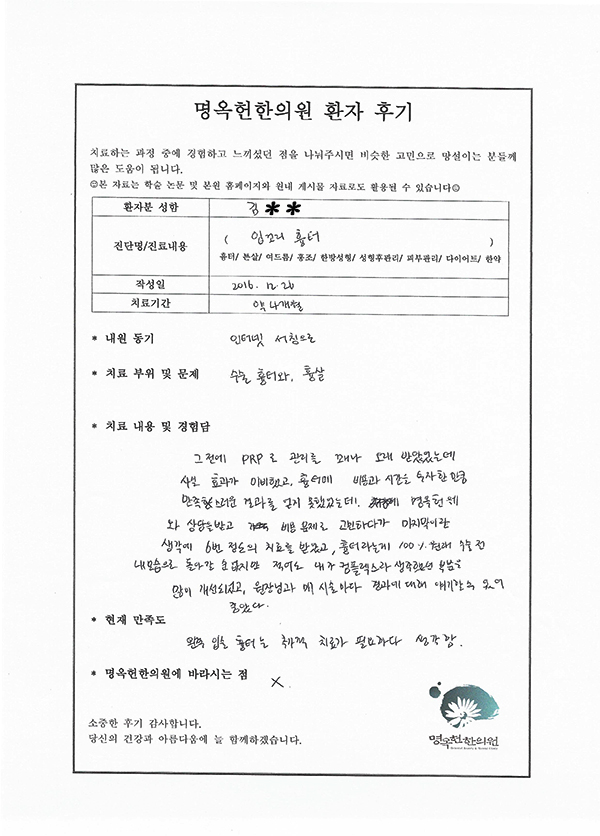 명옥헌한의원 환자 후기
치료하는 과정 중에 경험하고 느끼셨던 점을 나눠주시면 비슷한 고민으로 망설이는 분들께
많은 도움이 됩니다.
☺본 자료는 학술 논문 및 본원 홈페이지와 원내 게시물 자료로도 활용될 수 있습니다☺
환자분 성함 김**
진단명/진료내용 ( 입꼬리 흉터 )
흉터/ 튼살/ 여드름/ 홍조/ 한방성형/ 성형후관리/ 피부관리/ 다이어트/ 한약
작성일 2016. 12. 26
치료기간 약 4개월
* 내원 동기 인터넷 서칭으로
* 치료 부위 및 문제 수술 흉터와, 흉살
* 치료 내용 및 경험담
그전에 PRP로 관리를 꽤나 오래 받았었는데
사실 효과가 미비했고, 흉터에 비용과 시간을 투자한 만큼
만족스러운 결과를 얻지 못했었는데. 명옥헌에
와 상담을받고 비용 문제로 고민하다가 마지막이란
생각에 6번 정도의 치료를 받았고, 흉터라는게 100% 현재 수술 전
내모습으로 돌아갈 순 없지만 적어도 내가 컴플렉스라 생각했던 부분을
많이 개선되었고, 원장님과 매 시술마다 결과에 대해 얘기할 수 있어
좋았다.
* 현재 만족도
왼쪽 입술 흉터는 추가적 치료가 필요하다 생각함.
* 명옥헌한의원에 바라시는 점 X.
소중한 후기 감사합니다.
당신의 건강과 아름다움에 늘 함께하겠습니다.
명옥헌한의원